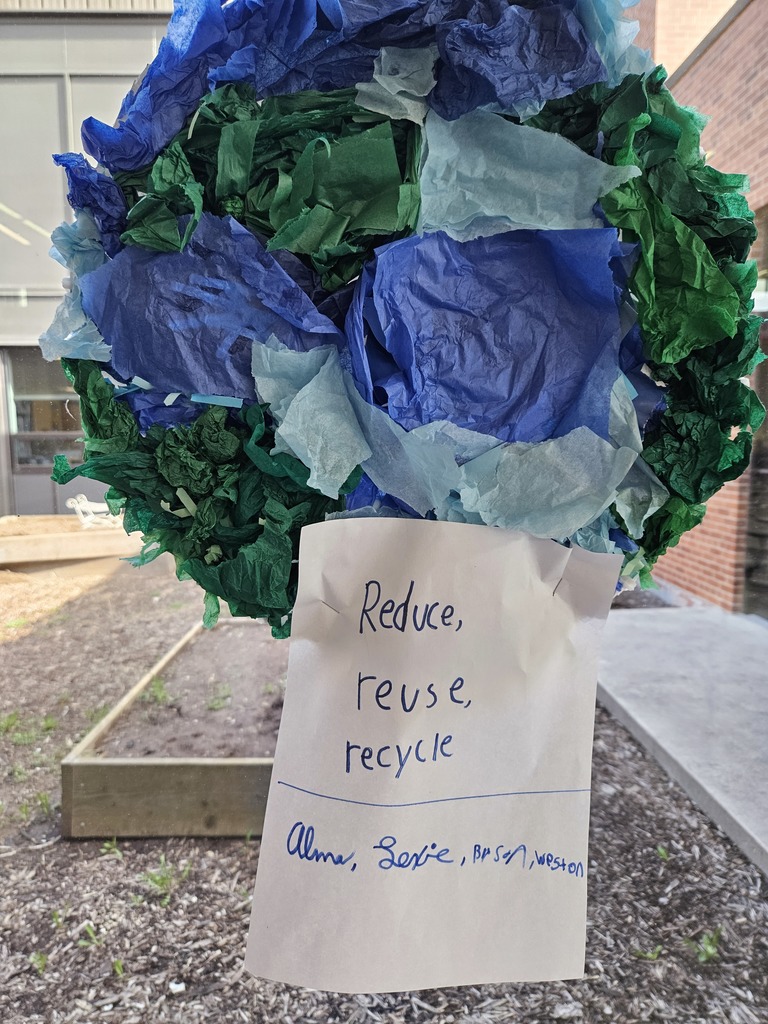 Reduce,
reuse,
recycle
Alma, Lexie, Weston